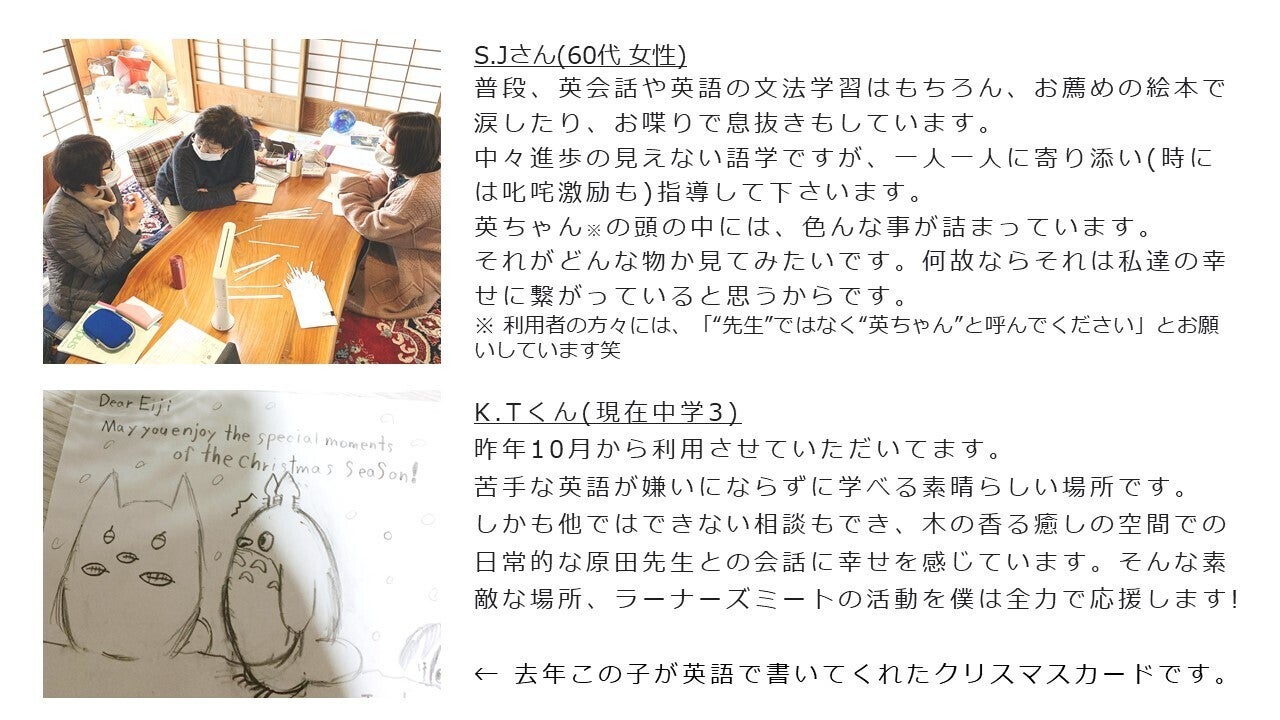 S.Jさん(60代 女性)
普段、英会話や英語の文法学習はもちろん、お薦めの絵本で
涙したり、お喋りで息抜きもしています。
中々進歩の見えない語学ですが、一人一人に寄り添い(時に
は叱咤激励も)指導して下さいます。
英ちゃん※の頭の中には、色んな事が詰まっています。
それがどんな物か見てみたいです。何故ならそれは私達の幸
せに繋がっていると思うからです。
※ 利用者の方々には、「“先生”ではなく“英ちゃん”と呼んでください」とお願
いしています笑
Dear Eiji
May you enjoy the special moments
of the christmas SeaSon!
K.Tくん(現在中学3)
昨年10月から利用させていただいてます。
苦手な英語が嫌いにならずに学べる素晴らしい場所です。
しかも他ではできない相談もでき、木の香る癒しの空間での
日常的な原田先生との会話に幸せを感じています。そんな素
敵な場所、ラーナーズミートの活動を僕は全力で応援します!
← 去年この子が英語で書いてくれたクリスマスカードです。